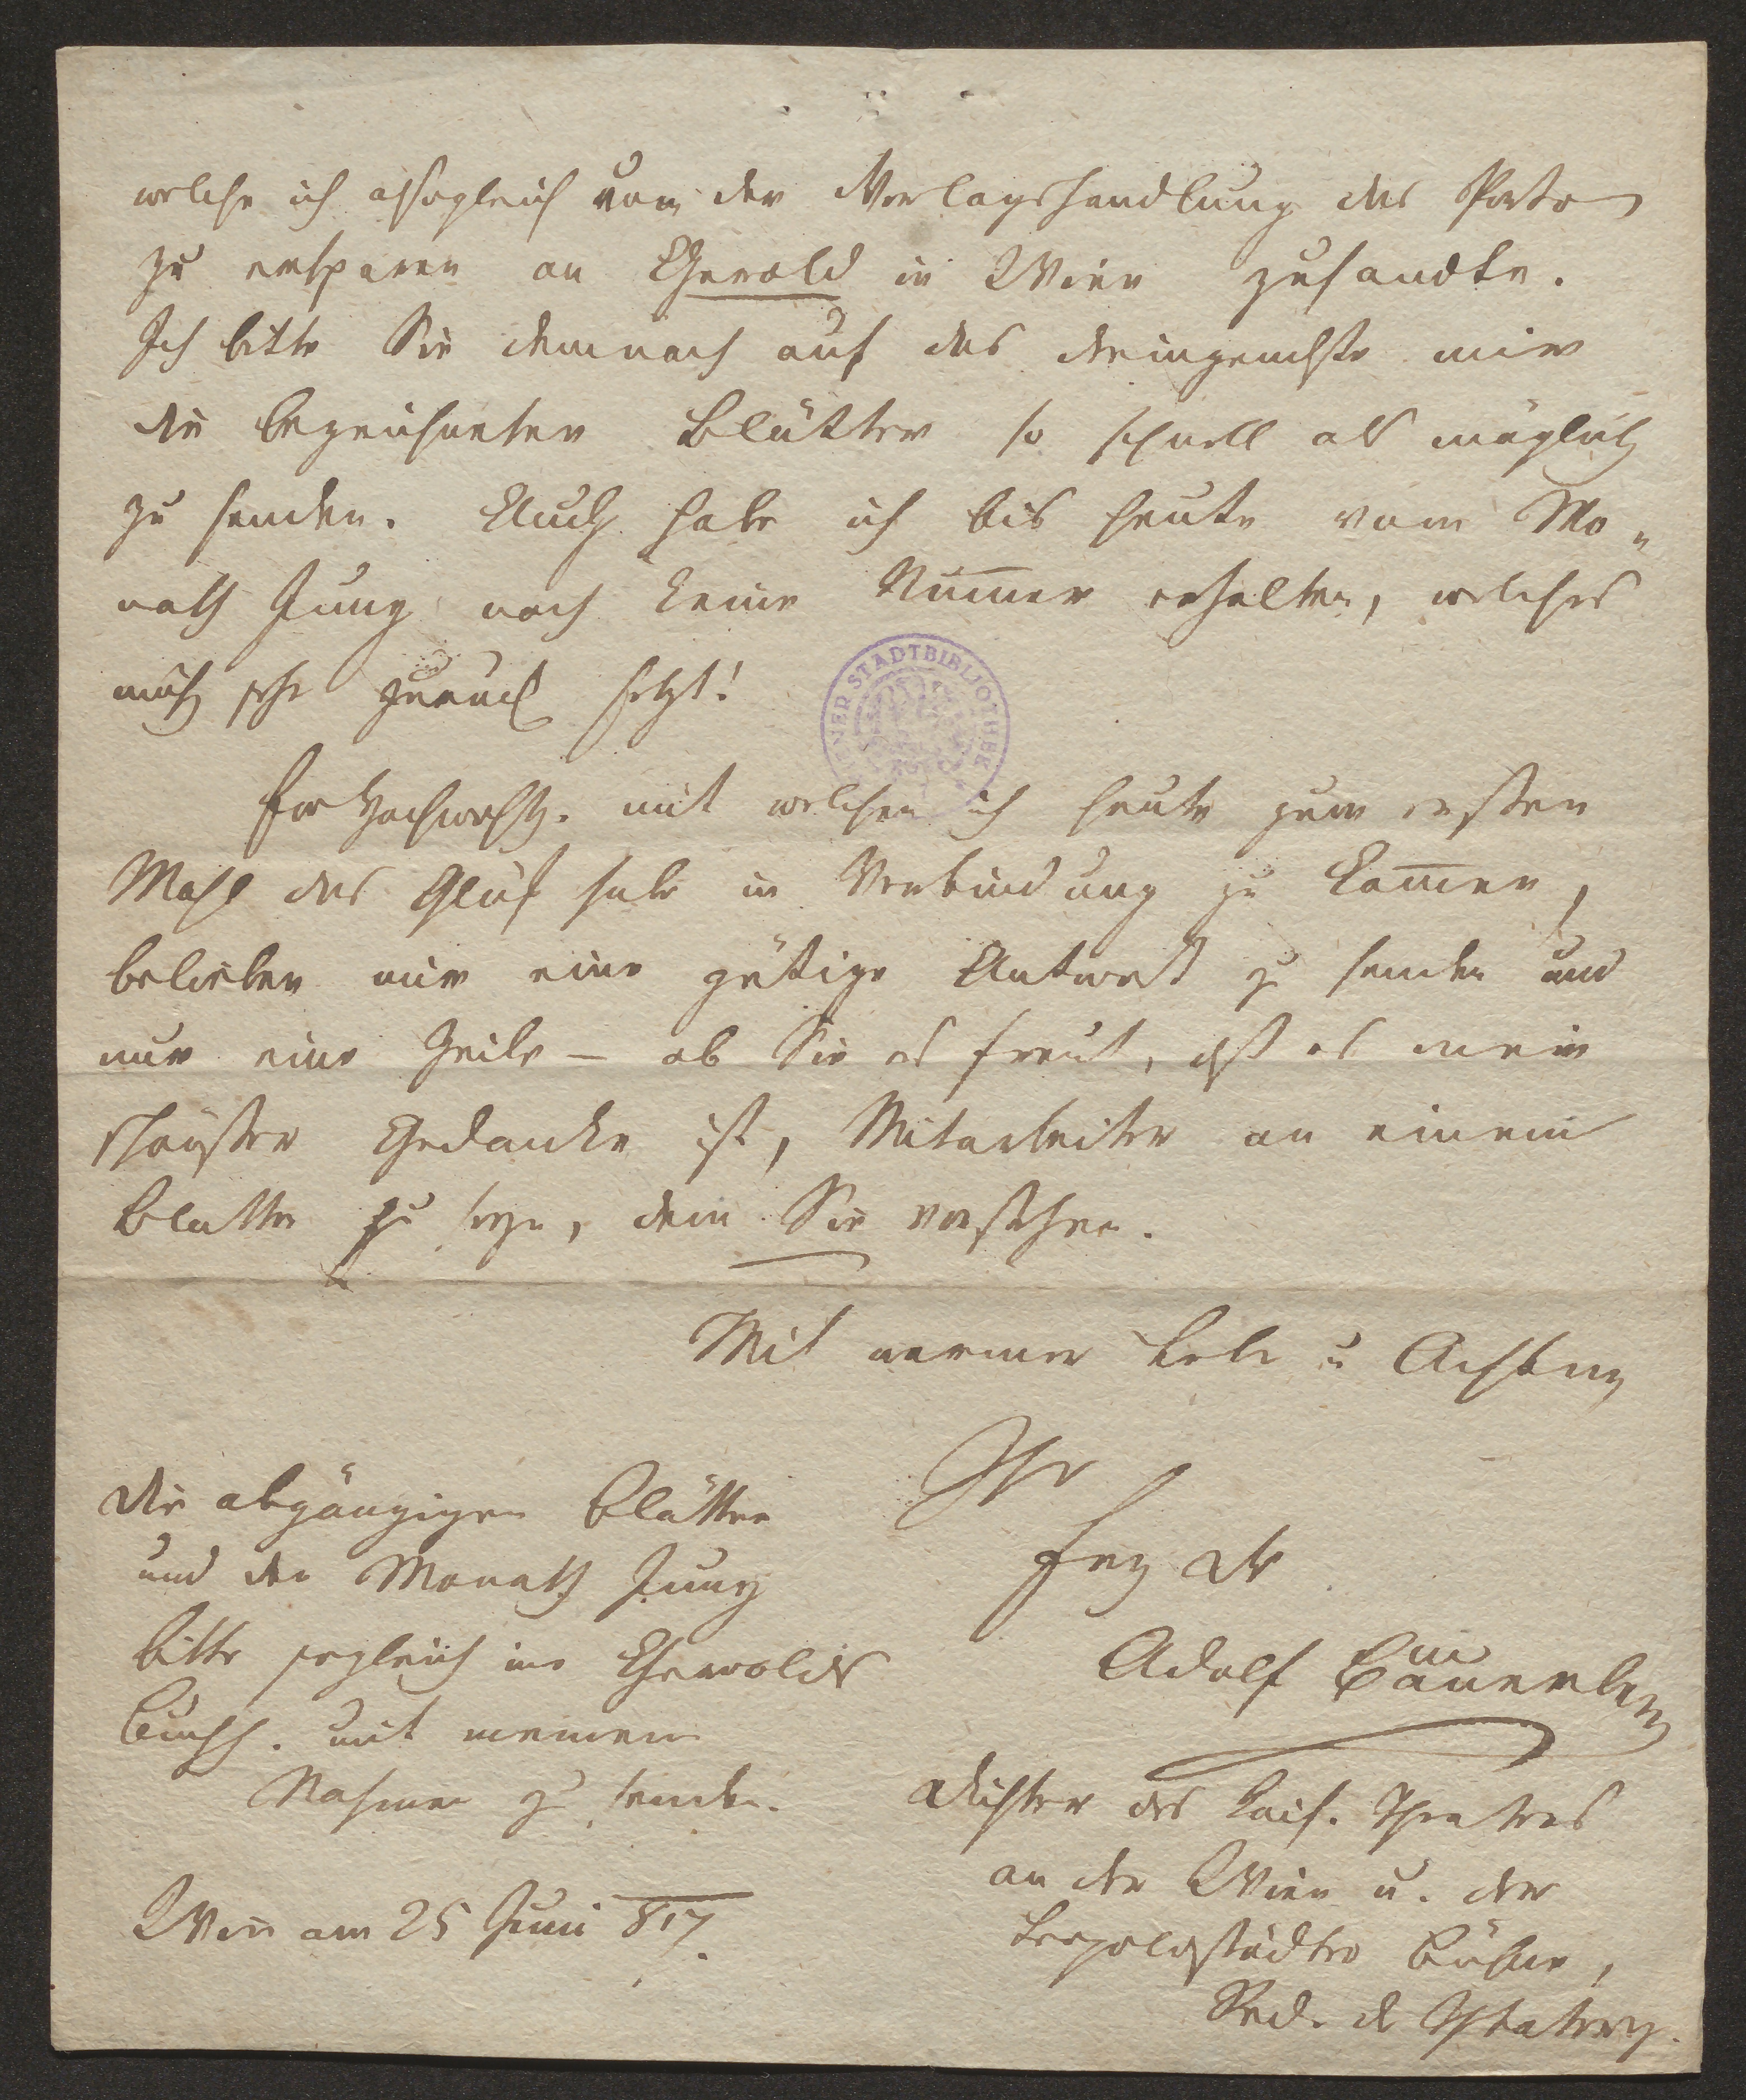 welche ich alsogleich von der Verlagshandlung das Porto
zu ersparen an Gerold in Wien zusandte.
Ich bitte Sie demnach auf das dringendste mir
die bezeichneten Blätter so schnell als möglich
zu senden. Auch habe ich bis heute vom Mo„
nath Juny noch keine Nummer erhalten, welches
mich sehr zurück setzt!
WIENER STADTBIBLIOTHEK
Euer Hochwohlg. mit welchen ich heute zum ersten
Mahl das Glük habe in Verbindung zu kommen,
belieben mir eine gütige Antwort zu senden und
nur eine Zeile – ob Sie es freut, daß es mein
schönster Gedanke ist, Mitarbeiter an einem
Blatte zu seyn, dem Sie vorstehen.
Mit warmer Liebe u Achtung
Ihr
Adolf Bäuerle
Dichter des kais. Theaters
an der Wien u. der
Leopoldstädter Bühne,
Red. d Theaterz.
Die abgängigen Blätter
und den Monath Juny
bitte sogleich in Gerolds
Buchh. mit meinem
Nahmen zu senden.
Wien am 25 Juni 817.